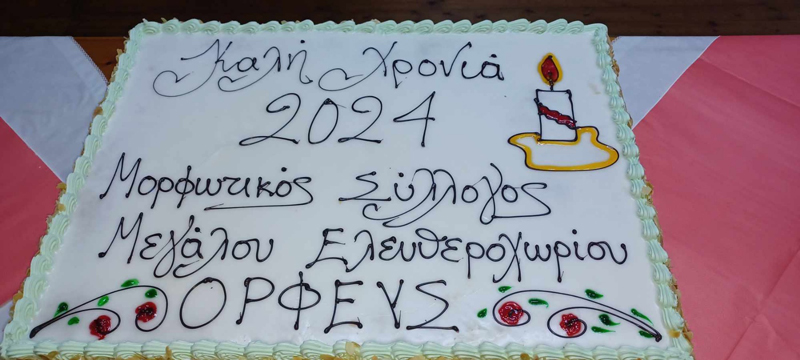 Καλή Χρονιά
2024
Μορφωτικός Σύλλογος
Μεγάλου Ελευθεροχωρίου
ΟΡΦΕΥΣ